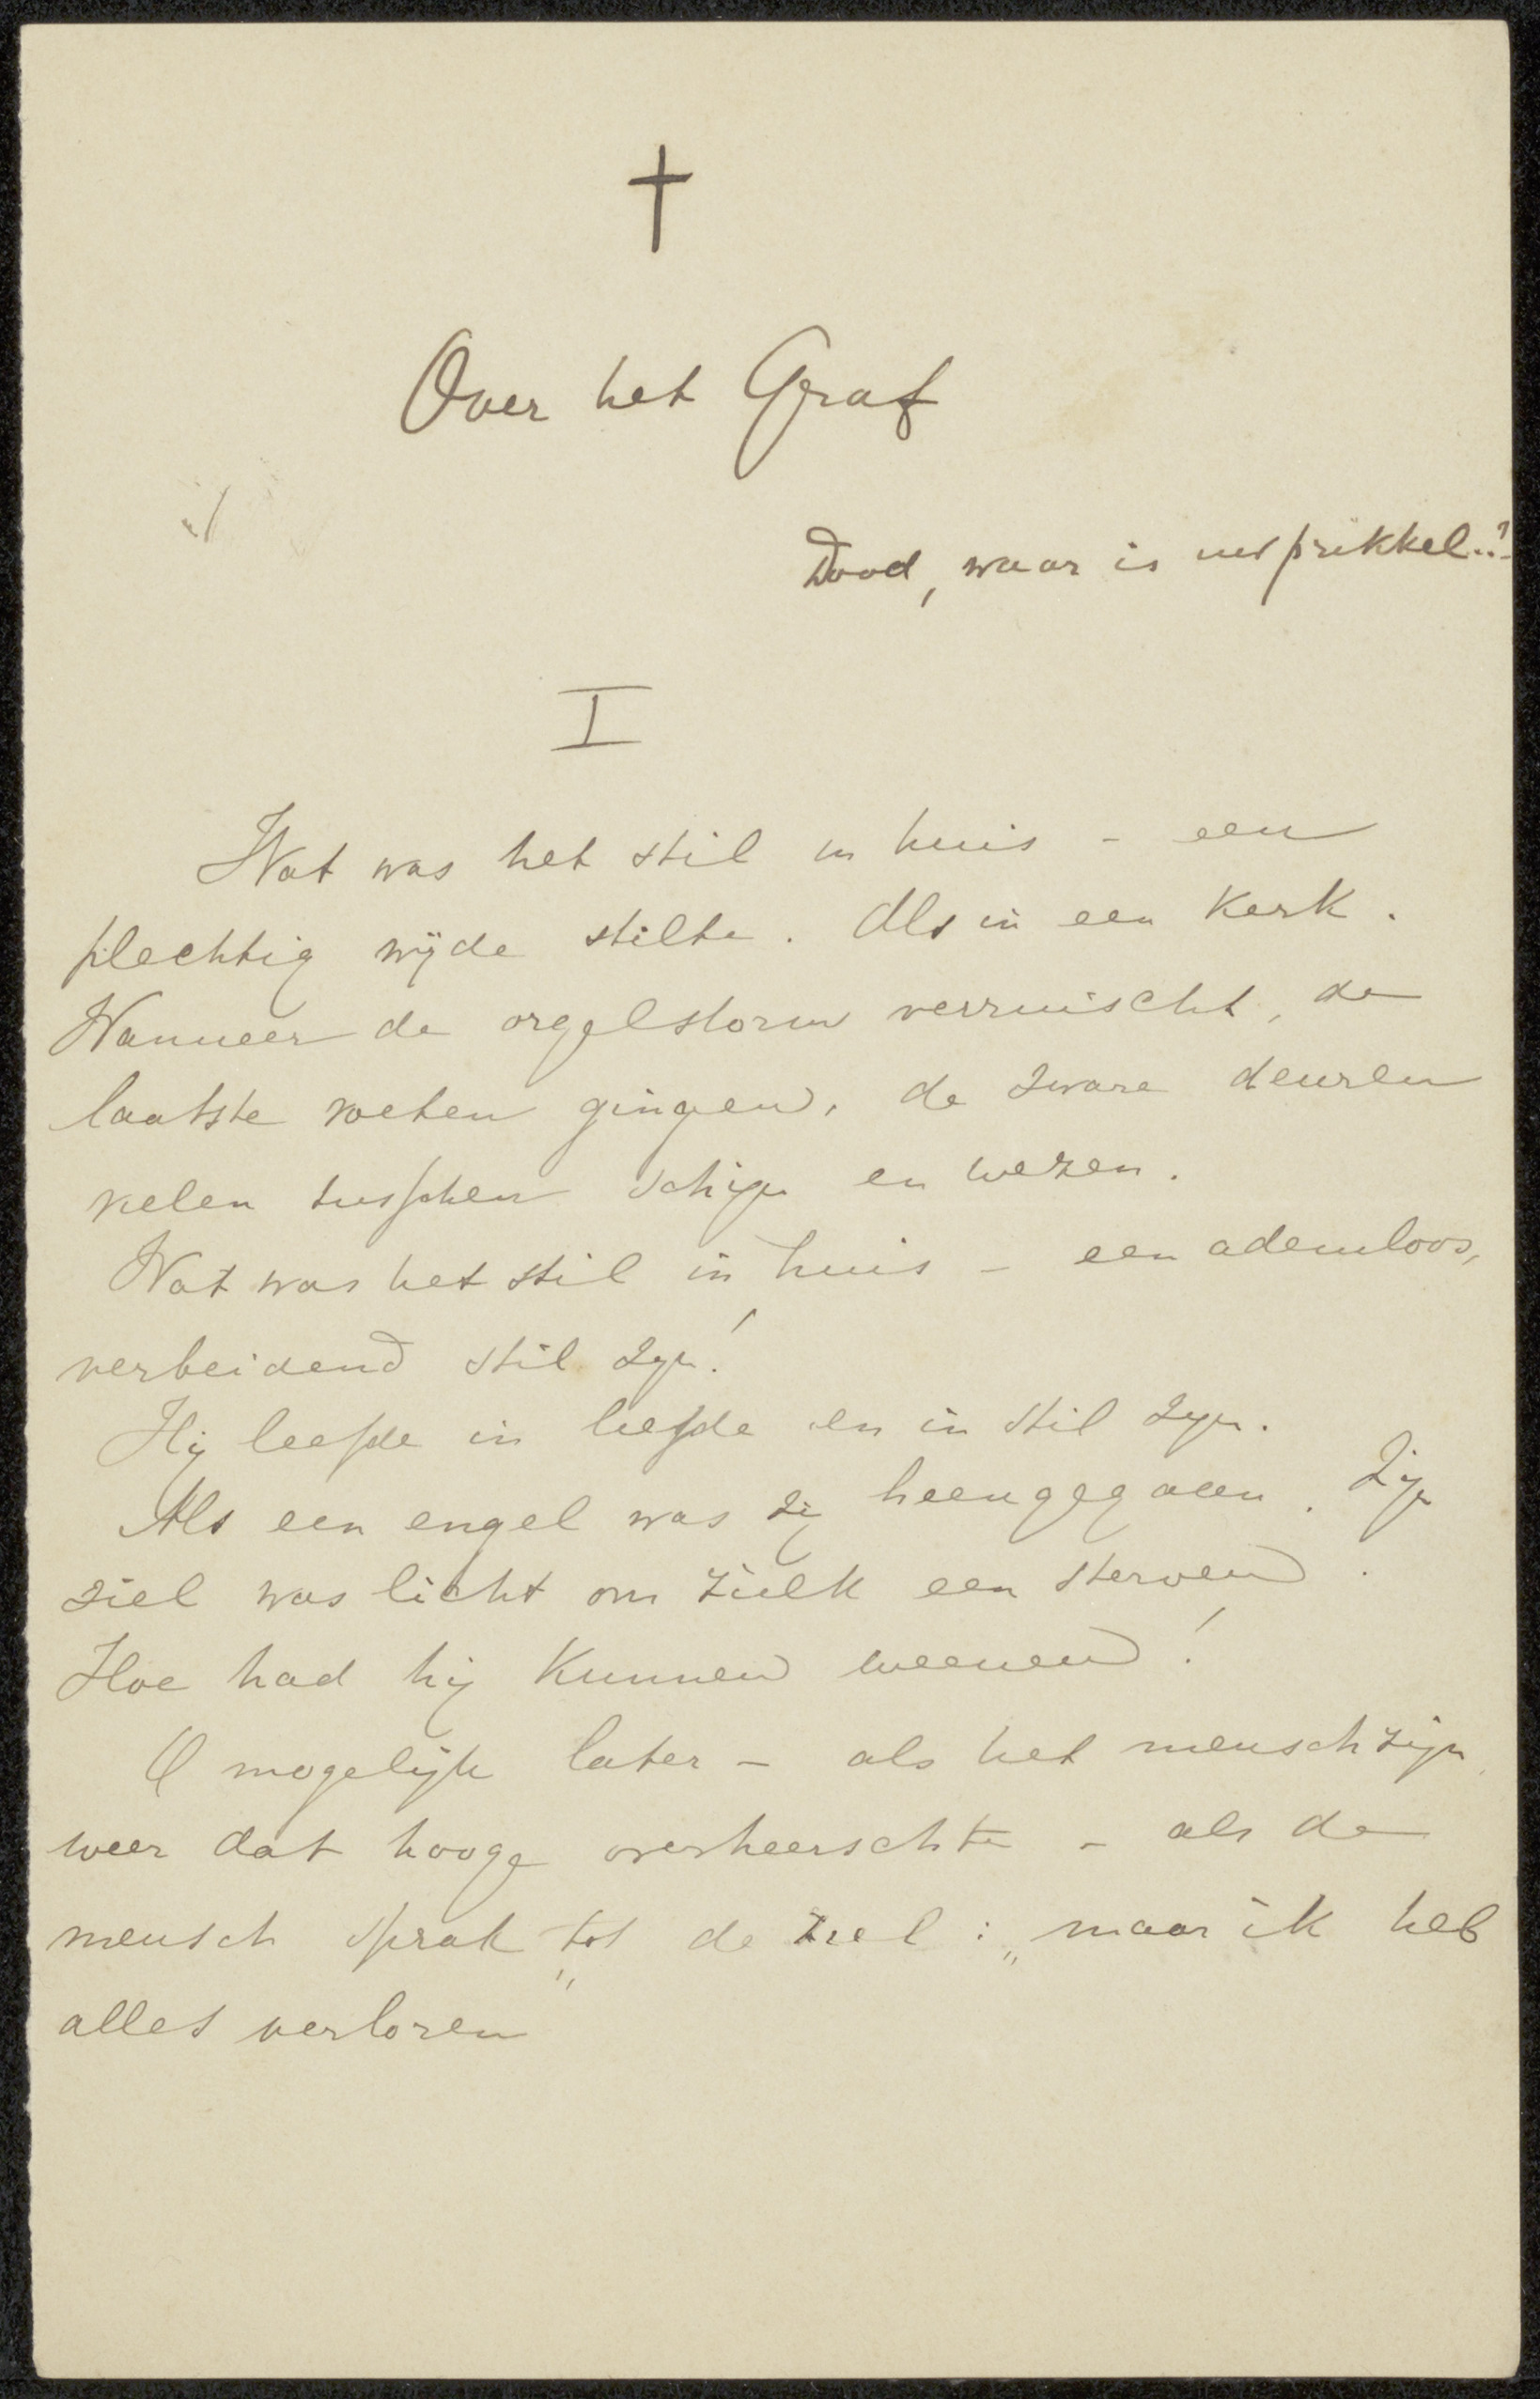 †
Over het Graf
Dood, waar is uw prikkel..?
I
Wat was het stil in huis – een
plechtig wijde stilte. Als in een Kerk.
Wanneer de orgelstorm verruischt, de
laatste voeten gingen, de zware deuren
vielen tusschen schijn en wezen.
Wat was het stil in huis – een ademloos,
verbeidend stil zijn!
Hij leefde in liefde en in stil zijn.
Als een engel was zij heengegaan. Zijn
ziel was licht om zulk een sterven.
Hoe had hij Kunnen weenen!
O mogelijk later – als het menschzijn
weer dat hooge overheerschte – als de
mensch sprak tot de ziel: „maar ik heb
alles verloren"